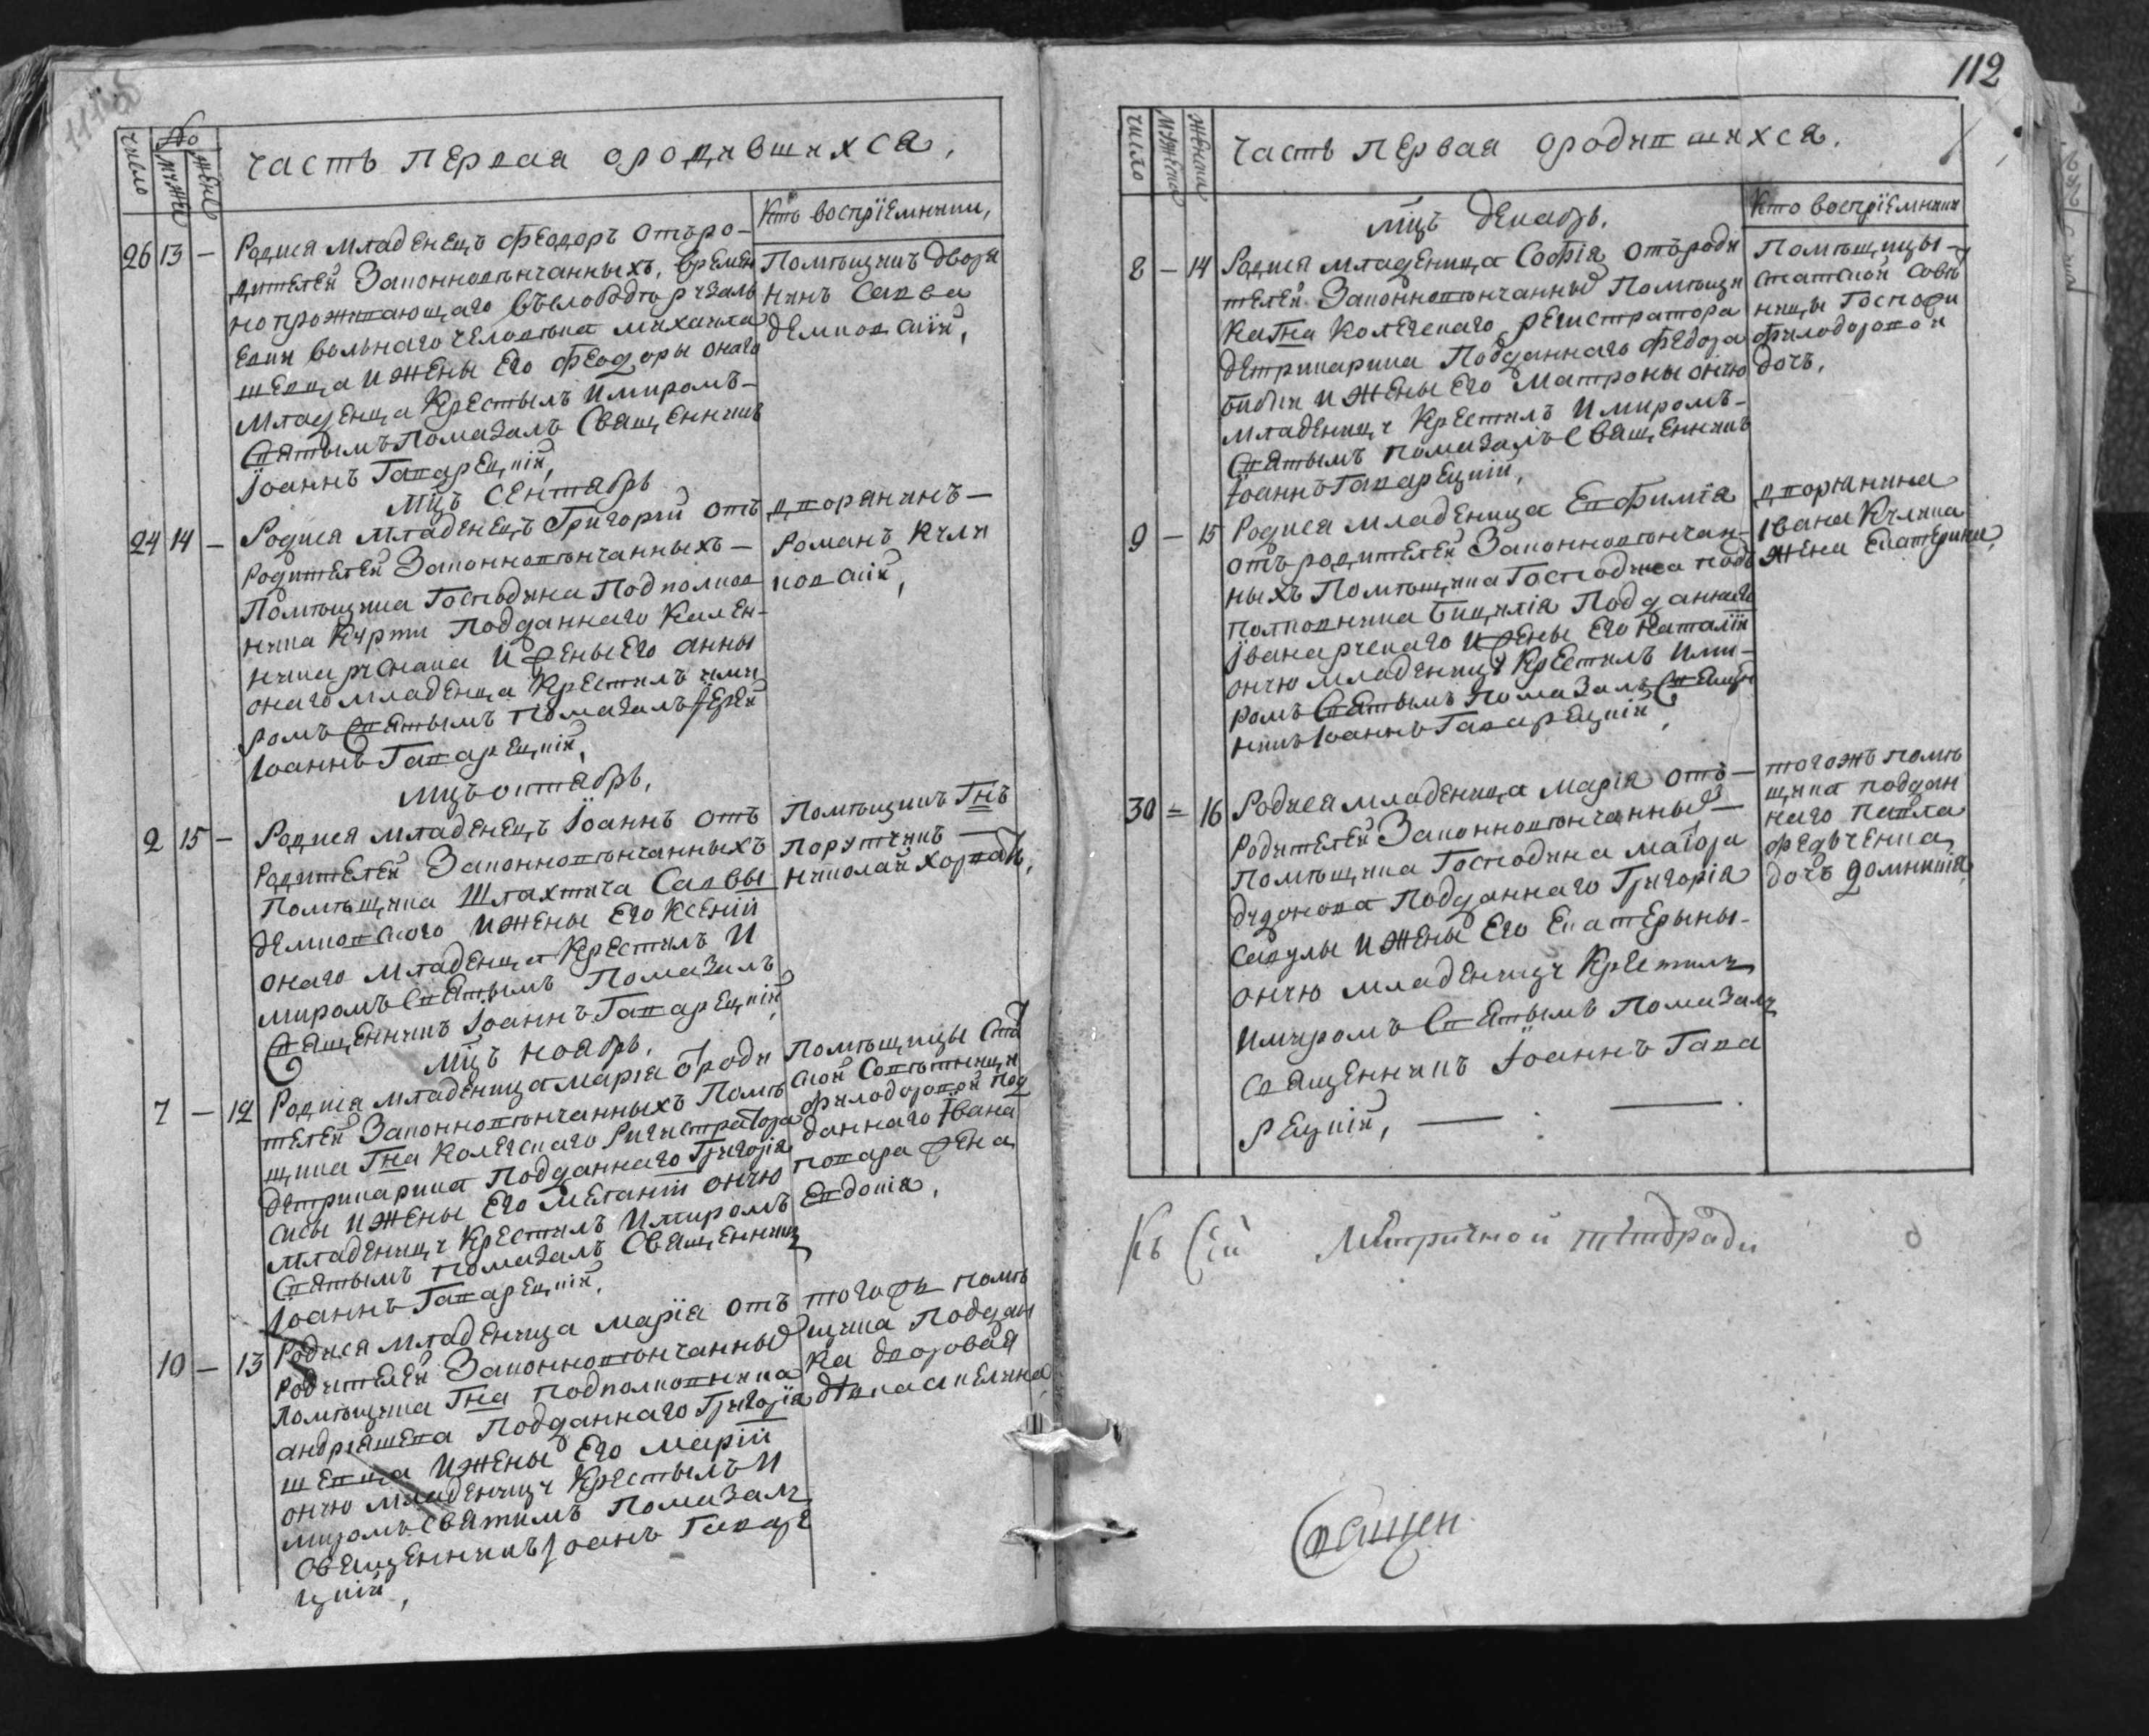 112
число
No
мужс
женс
часть первая ородившихса,
Кто восприемники,
26 13 —
Родися младенецъ феодоръ отъро-
дителей Законновѣнчанныхъ, времен
но проживающаго
вольнаго человѣка михаила
шевца и жены Его феодоры онаго
младенца Крестылъ и миромъ-
Святымъ Помазалъ Священникъ
Іоаннъ Гапарецкій,
Помѣщикъ дворя
нинъ Савва
демковскій,
мцъ сентябрь
24 14 —
Родися младенецъ Григорій отъ
родителей Законновѣнчанныхъ —
Помѣщика Господина Подполков
ника Курти Подданнаго
и жены Его анны
онаго младенца Крестилъ ими
ромъ Святымъ Помазалъ Іерей
Іоаннъ Гапарецкій,
дворянинъ —
романъ кули
ковскій,
мцъ октябрь,
2 15 —
Родися младенецъ Іоаннъ отъ
родителей Законновѣнчанныхъ
Помѣщика Шлахтича Саввы
демковского и жены Его Ксеніи
онаго младенца Крестилъ И
миромъ Святымъ Помазалъ
Священникъ Іоаннъ Гапарецкій,
Помѣщикъ Гнъ
Порутчикъ —
николай
мцъ ноябрь,
7 — 12
Родися младеница марія ороди
телей Законновѣнчанныхъ Помѣ
щика Гна Колегскаго Ригистратора
детрикарика Подданнаго Григорія
сисы и жены Его меланіи оную
младеницу Крестилъ Имиромъ
Святымъ Помазалъ Священникъ
Іоаннъ Гапарецкій,
Помѣщицы Ста
ской Совѣтници
филодоровой под
даннаго Івана
жена
Евдокія,
10 — 13
Родися младеница марїя отъ
родителей Законновѣнчанны
Помѣщика Гна подполковника
Подданнаго Григорія
шевца и жены Его маріи
оную младеницу Крестылъ И
миромъ Святимъ Помазалъ
Священникъ Іоанъ Гапаре
цкій,
тогожъ помѣ
щика поддан
ка дворовая
дѣвка
число
мужеска
женска
часть первая ородившихся.
Кто восприемники
мцъ декабрь.
8 — 14
Родися младеница Софія отъроди
телей Законновѣнчанныхъ Помѣщи
ка Гна Колегскаго регистратора
детрикарика Подданнаго федора
и жены Его матроны оную
младеницу Крестилъ и миромъ-
Святымъ помазалъ Священникъ
Іоаннъ Гапарецкій,
Помѣщицы —
статской совѣ
ницы Госпожи
филодоровой
дочъ,
9 — 15
Родися младеница Евфимія
отъ родителей Законновѣнчан-
ныхъ Помѣщика Господина подъ
полковника Подданнаго
Івана и жены Его наталіи
оную младеницу Крестилъ ими-
ромъ Святымъ Помазалъ Священ
никъ Іоаннъ Гапарецкій,
дворянина
Івана
жена Екатерина,
30 = 16
Родися младеница марія отъ —
родителей Законновѣнчанных —
помѣщика Господина маіора
Подданнаго Григорія
и жены Его Екатерыны-
оную младеницу Крестилъ
имиромъ Святымъ помазалъ
Священникъ Іоаннъ Гапа
рецкій, —
тогожъ помѣ
щика поддан
наго павла
федченка
дочъ домникія,
Къ Сей Метричной тетради
Священ